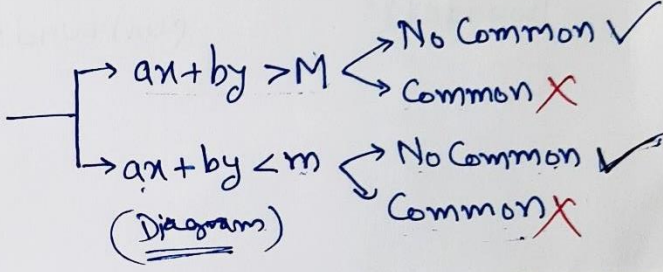 ax+by >M
No Common ✓
Common X
ax+by <m
No Common ✓
Common X
(Diagram)